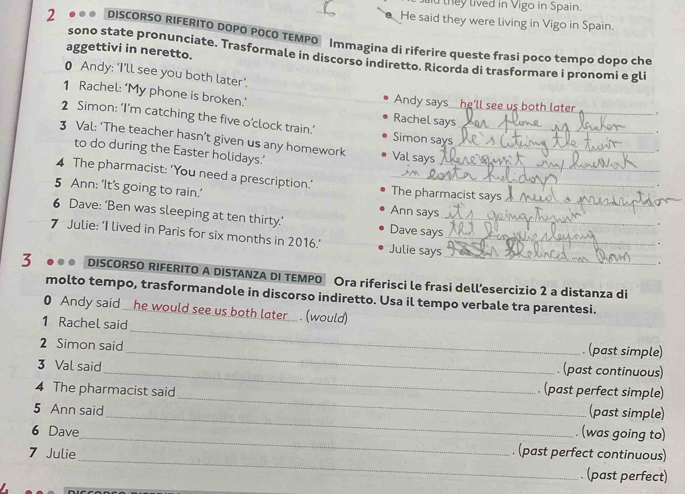 they lived in Vigo in Spain.
e He said they were living in Vigo in Spain.
2 DISCORSO RIFERITO DOPO POCO TEMPO Immagina di riferire queste frasi poco tempo dopo che
sono state pronunciate. Trasformale in discorso indiretto. Ricorda di trasformare i pronomi e gli
aggettivi in neretto.
0 Andy: 'I'll see you both later'.
1 Rachel: 'My phone is broken.'
2 Simon: 'I'm catching the five o'clock train.'
3 Val: 'The teacher hasn't given us any homework
to do during the Easter holidays.'
4 The pharmacist: 'You need a prescription.'
5 Ann: 'It's going to rain.'
6 Dave: 'Ben was sleeping at ten thirty.'
7 Julie: 'I lived in Paris for six months in 2016.'
• Andy says he'll see us both later.
• Rachel says her
• Simon says he's the
• Val says
in
• The pharmacist says I need a
• Ann says it's going
• Dave says
• Julie says
3 DISCORSO RIFERITO A DISTANZA DI TEMPO Ora riferisci le frasi dell'esercizio 2 a distanza di
molto tempo, trasformandole in discorso indiretto. Usa il tempo verbale tra parentesi.
0 Andy said he would see us both later. (would)
1 Rachel said . (past simple)
2 Simon said . (past continuous)
3 Val said . (past perfect simple)
4 The pharmacist said (past simple)
5 Ann said . (was going to)
6 Dave . (past perfect continuous)
7 Julie . (past perfect)